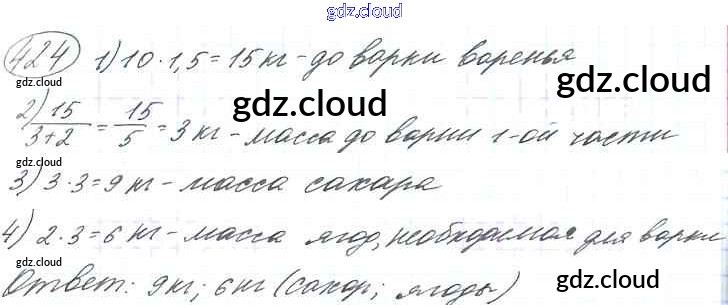 gdz.cloud
424 1) 10 · 1,5 = 15 кг - до варки варенья
gdz.cloud
gdz.cloud
2) 15/(3+2) = 15/5 = 3 кг - масса до варки 1-ой части
gdz.cloud
gdz.cloud
gdz.cloud
3) 3·3=9 кг - масса сахара
4) 2·3=6 кг - масса ягод, необходимая для варки
gdz.cloud
gdz.cloud
Ответ: 9кг; 6кг (сахар; ягоды)
gdz.cloud
gdz.cloud